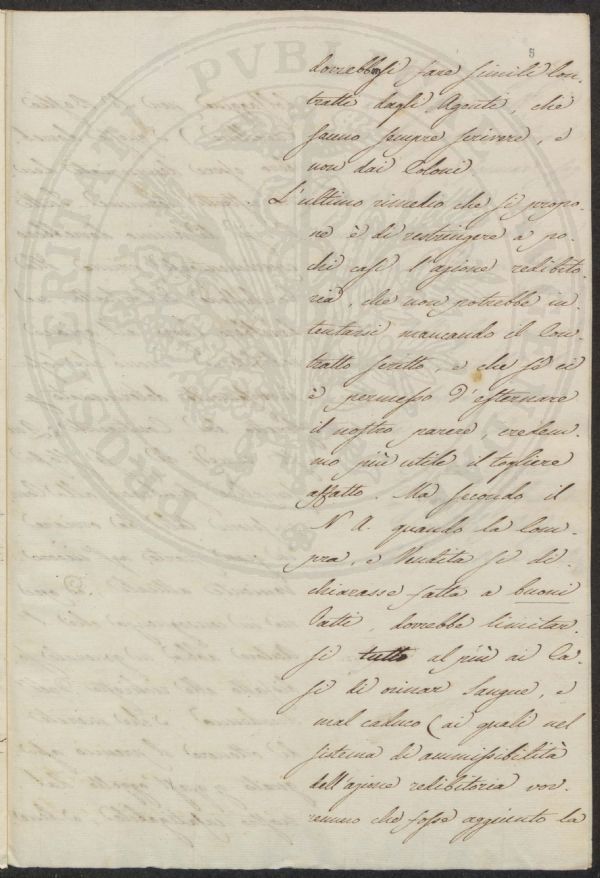 8
dovrebbesi fare simili Con-
tratti dagli Agenti, che
sanno sempre scrivere, e
non dai Coloni
L'ultimo rimedio che si propo-
ne è di restringere a po-
chi casi l'azione redibito-
ria, che non potrebbe in-
tentarsi mancando il Con-
tratto scritto, e che se ci
è permesso d'esternare
il nostro parere, credem-
mo più utile il togliere
affatto. Ma secondo il
N. A. quando la Com-
pra, e Vendita si di-
chiarasse fatta a buoni
Patti, dovrebbe limitar-
si tutto al più ai Ca-
si di orinar Sangue, e
mal caduco (ai quali nel
sistema di ammissibilità
dell'azione redibitoria vor-
remmo che fosse aggiunto la
PROSPERITATI PVBLICAE